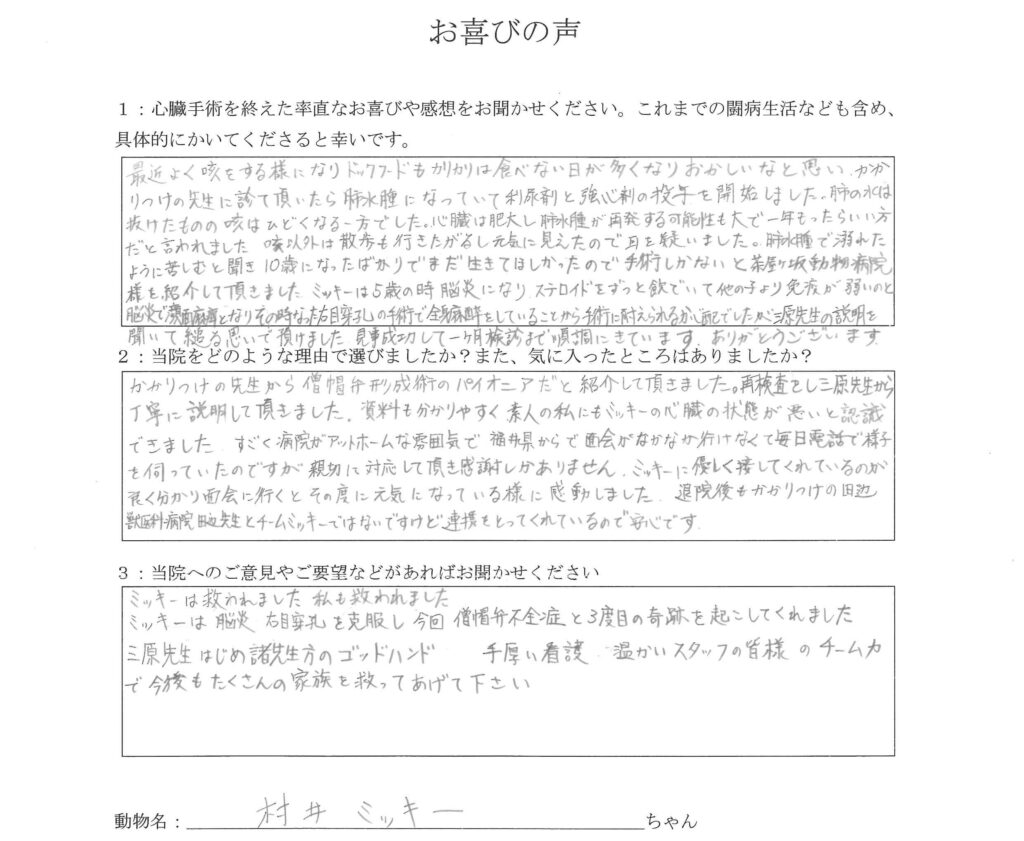 お喜びの声
1：心臓手術を終えた率直なお喜びや感想をお聞かせください。これまでの闘病生活なども含め、
具体的にかいてくださると幸いです。
最近よく咳をする様になりドックフードもカリカリは食べない日が多くなりおかしいなと思い、かか
りつけの先生に診て頂いたら肺水腫になっていて利尿剤と強心剤の投与を開始しました。肺の水は
抜けたものの咳はひどくなる一方でした。心臓は肥大し肺水腫が再発する可能性も大で一年もったらいい方
だと言われました 咳以外は散歩も行きたがるし元気に見えたので耳を疑いました。肺水腫で溺れた
ように苦しむと聞き10歳になったばかりでまだ生きてほしかったので手術しかないと茶屋ヶ坂動物病院
様を紹介して頂きました ミッキーは5歳の時脳炎になり、ステロイドをずっと飲でいて他の子より免疫が弱いのと
脳炎で顔面麻痺となりその時なった右目穿孔の手術で全身麻酔をしていることから手術に耐えられるか心配でしたが三原先生の説明を
聞いて縋る思いで頂けました 見事成功して一ヶ月検診まで順調にきています ありがとうございます
2：当院をどのような理由で選びましたか？また、気に入ったところはありましたか？
かかりつけの先生から僧帽弁形成術のパイオニアだと紹介して頂きました。再検査をし三原先生から
丁寧に説明して頂きました、資料も分かりやすく素人の私にもミッキーの心臓の状態が悪いと認識
できました すごく病院がアットホームな雰囲気で 福井県からで面会がなかなか行けなくて毎日電話で様子
を伺っていたのですが親切に対応して頂き感謝しかありません、ミッキーに優しく接してくれているのが
良く分かり面会に行くとその度に元気になっている様に感動しました、退院後もかかりつけの田辺
獣医科病院田辺先生とチームミッキーではないですけど連携をとってくれているので安心です
3：当院へのご意見やご要望などがあればお聞かせください
ミッキーは救われました 私も救われました
ミッキーは脳炎 右目穿孔を克服し今回僧帽弁不全症と3度目の奇跡を起こしてくれました
三原先生はじめ諸先生方のゴッドハンド 手厚い看護 温かいスタッフの皆様のチーム力
で今後もたくさんの家族を救ってあげて下さい
動物名：村井 ミッキー ちゃん